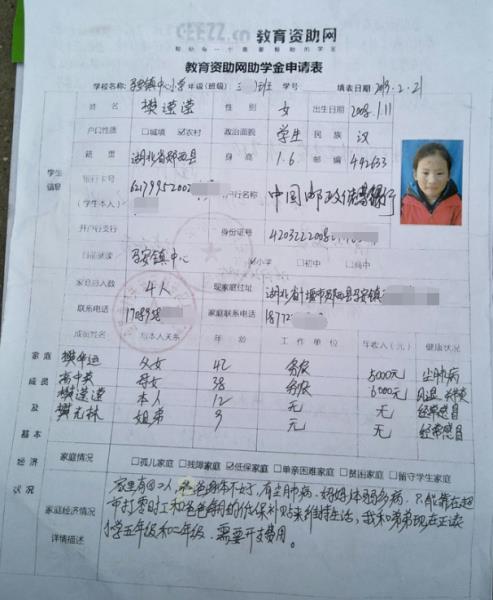 CEEZZ.cn 教育资助网
帮助每一个需要帮助的学生
教育资助网助学金申请表
学校名称: 安镇中心小学 年级(班级) 三 班 学号 填表日期 2019.2.21
姓名 樊滢滢 性别 女 出生日期 2008.1.11
户口性质 □城镇 ☑农村 政治面貌 学生 民族 汉
籍贯 湖北省郧西县 身高 1.6 邮编 442633
学生信息
银行卡号(学生本人) 6217995200 开户行名称 中国邮政储蓄银行
开户行支行 身份证号 420322200801
目前就读 安镇中心 ☑小学 □初中 □高中
家庭总人数 4人 现家庭住址 湖北省十堰市郧西县 安镇
联系电话 17089 家庭联系电话 1877
成员姓名 与本人关系 年龄 工作单位 年收入(元) 健康状况
家庭成员及基本经济状况
樊华运 父女 42 务农 5000元 尘肺病
高中英 母女 38 务农 6000元
樊滢滢 本人 12 无 无 经常感冒
樊元林 姐弟 9 无 无 经常感冒
家庭情况 □孤儿家庭 □残障家庭 ☑低保家庭 □单亲困难家庭 □贫困家庭 □留守学生家庭
家庭经济情况详情描述
家里有四口人,爸爸身体不好,有尘肺病,妈妈体弱多病,只能靠在超
市打零时工和爸爸每月的低保补贴来维持生活,我和弟弟现在正读
小学五年级和二年级,需要开支费用。